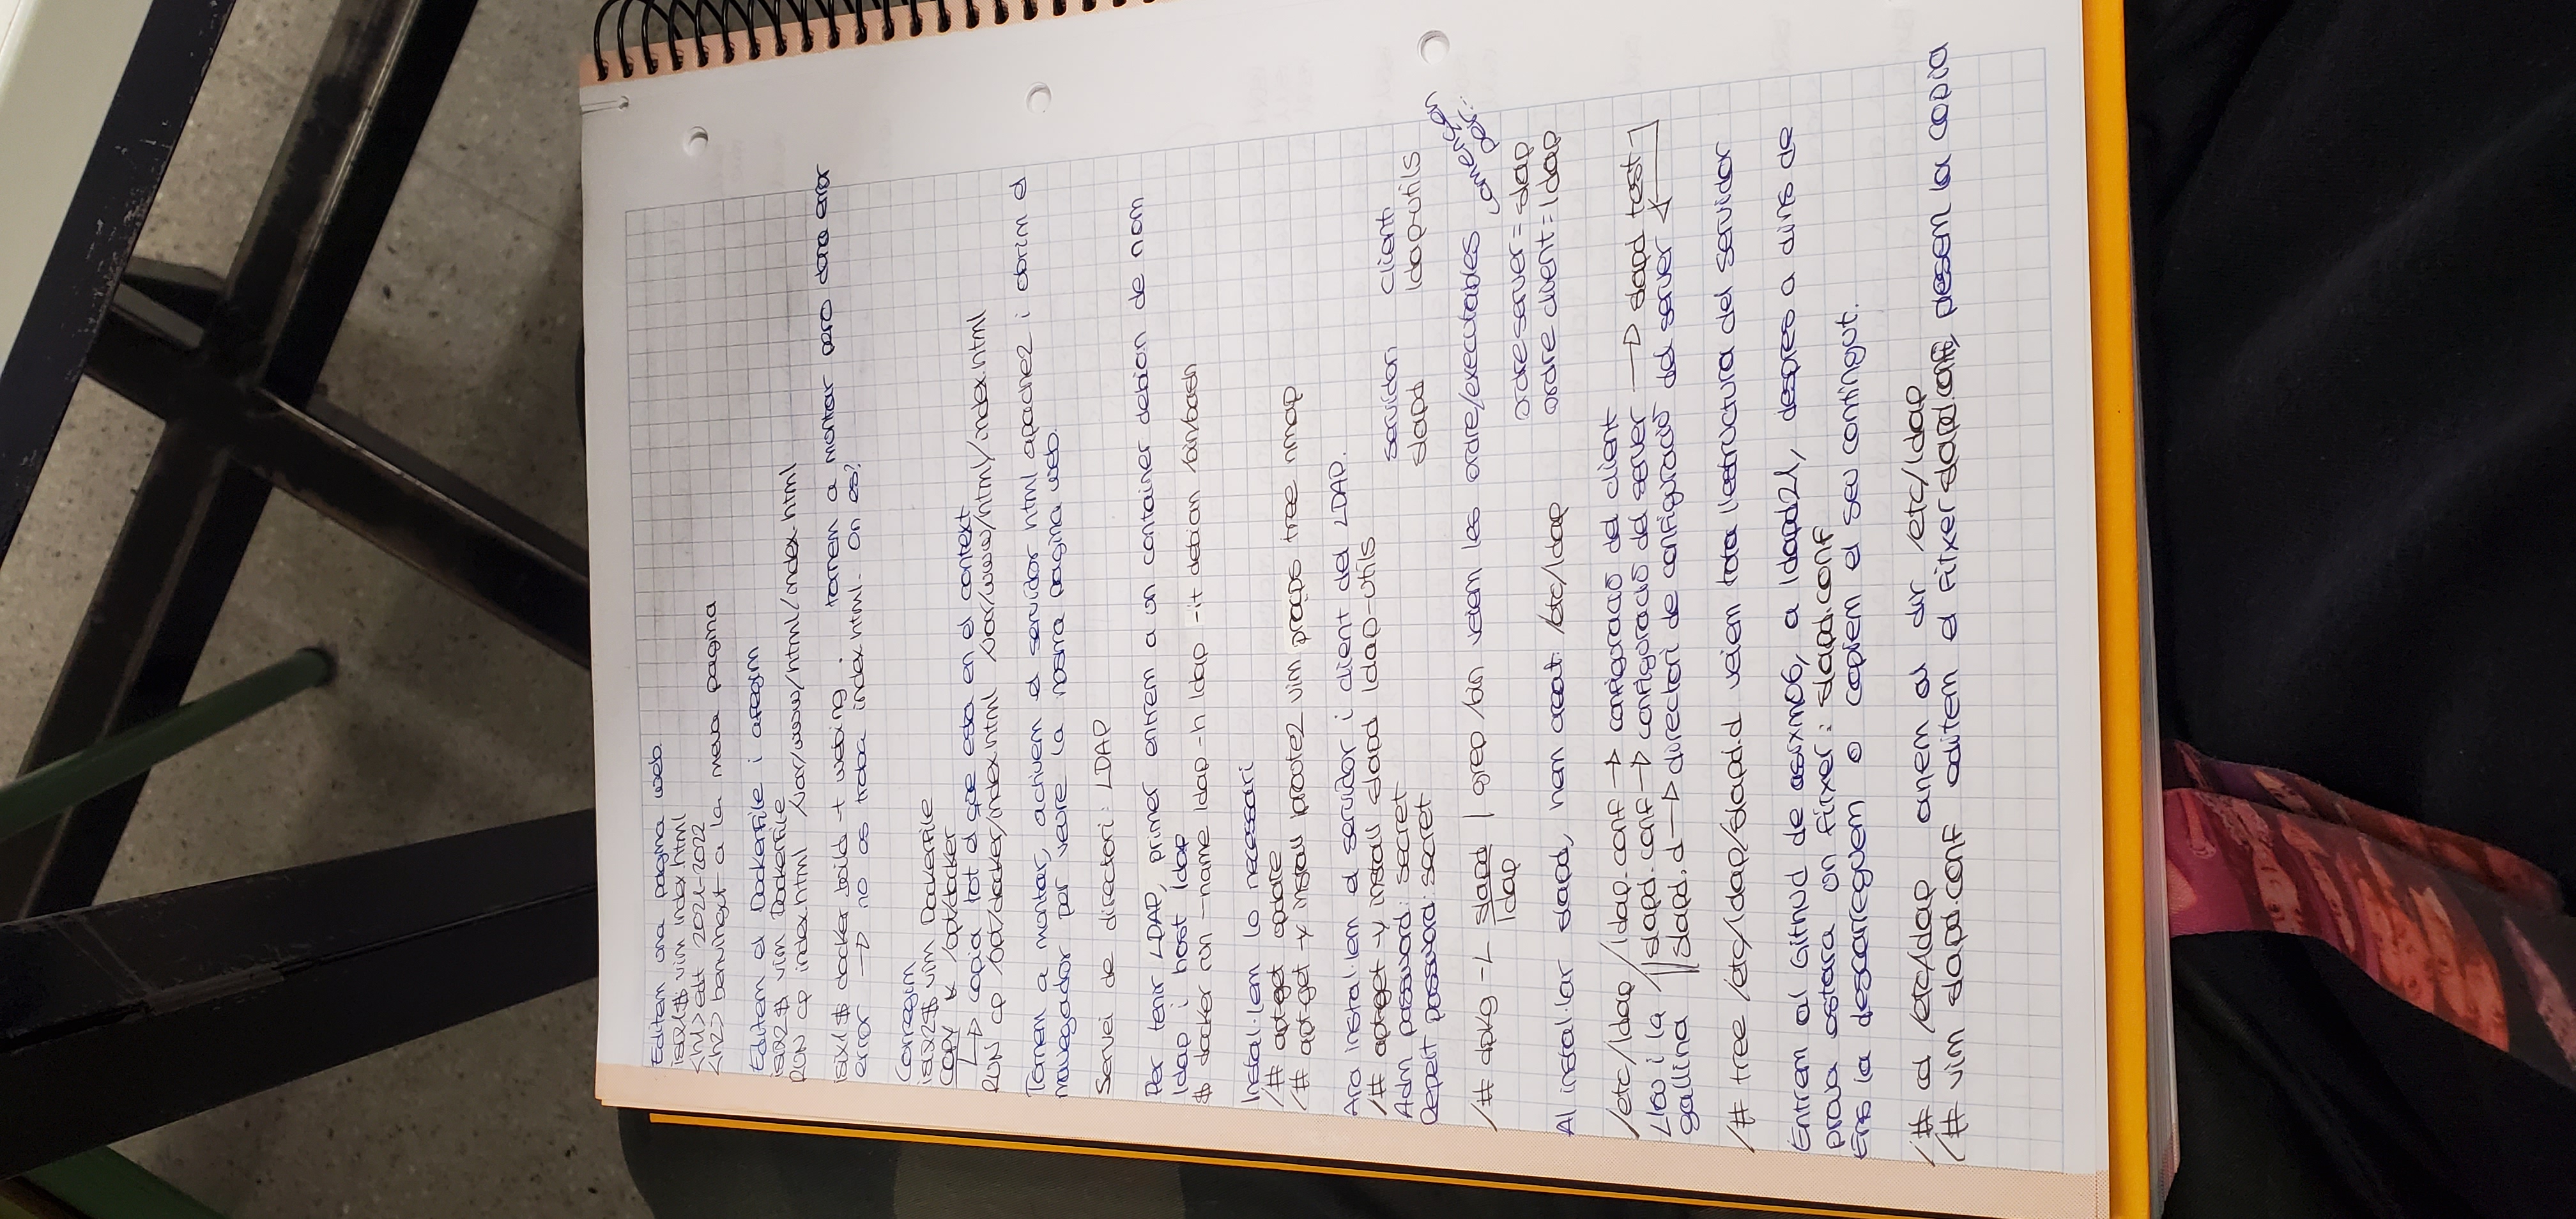 Editem una pagina web.
isix1$ vim index.html
<h1> edt 2021-2022
<h2> benvingut a la meva pagina
Editem el Dockerfile i afegim
vim Dockerfile
RUN cp index.html /var/www/html/index.html
isix1$ docker build -t webimg . tornem a montar pero dona error
error → no es troba index.html. On es?
Corregim
vim Dockerfile
COPY * /opt/docker
↳ copia tot el que esta en el context
RUN cp /opt/docker/index.html /var/www/html/index.html
Tornem a montar, activem el servidor html apache2 i obrim el
navegador per veure la nostra pagina web.
Servei de directori: LDAP
Per tenir LDAP, primer entrem a un container debian de nom
ldap i host ldap
$ docker run --name ldap -h ldap -it debian /bin/bash
Instal·lem lo necessari
/# apt-get update
/# apt-get -y install iproute2 vim procps tree nmap
Ara instal·lem el servidor i client del LDAP.
/# apt-get -y install slapd ldap-utils
Adm password: secret
Repeit password: secret
servidor: client:
slapd ldap-utils
/# dpkg -L slapd | grep /bin veiem les ordre/executables
ldap
comencen
per...
ordre server = slap
ordre client = ldap
Al instal·lar slapd, hem creat: /etc/ldap
/etc/ldap/ldap.conf → configuració del client
L'ou i la slapd.conf → configuració del server → slapd test
gallina slapd.d → directori de configuració del server
/# tree /etc/ldap/slapd.d veiem tota l'estructura del servidor
Entrem al Github de asixm06, a ldapd21, despres a dins de
prova estara un fitxer: slapd.conf
Ens la descarreguem o copiem el seu contingut.
/# cd /etc/ldap anem al dir /etc/ldap
/# vim slapd.conf editem el fitxer slapd.conf, posem la copia